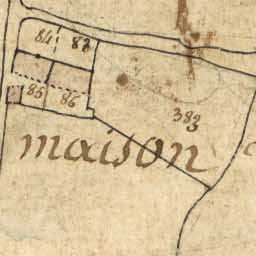 84 83
85 86
383
maison